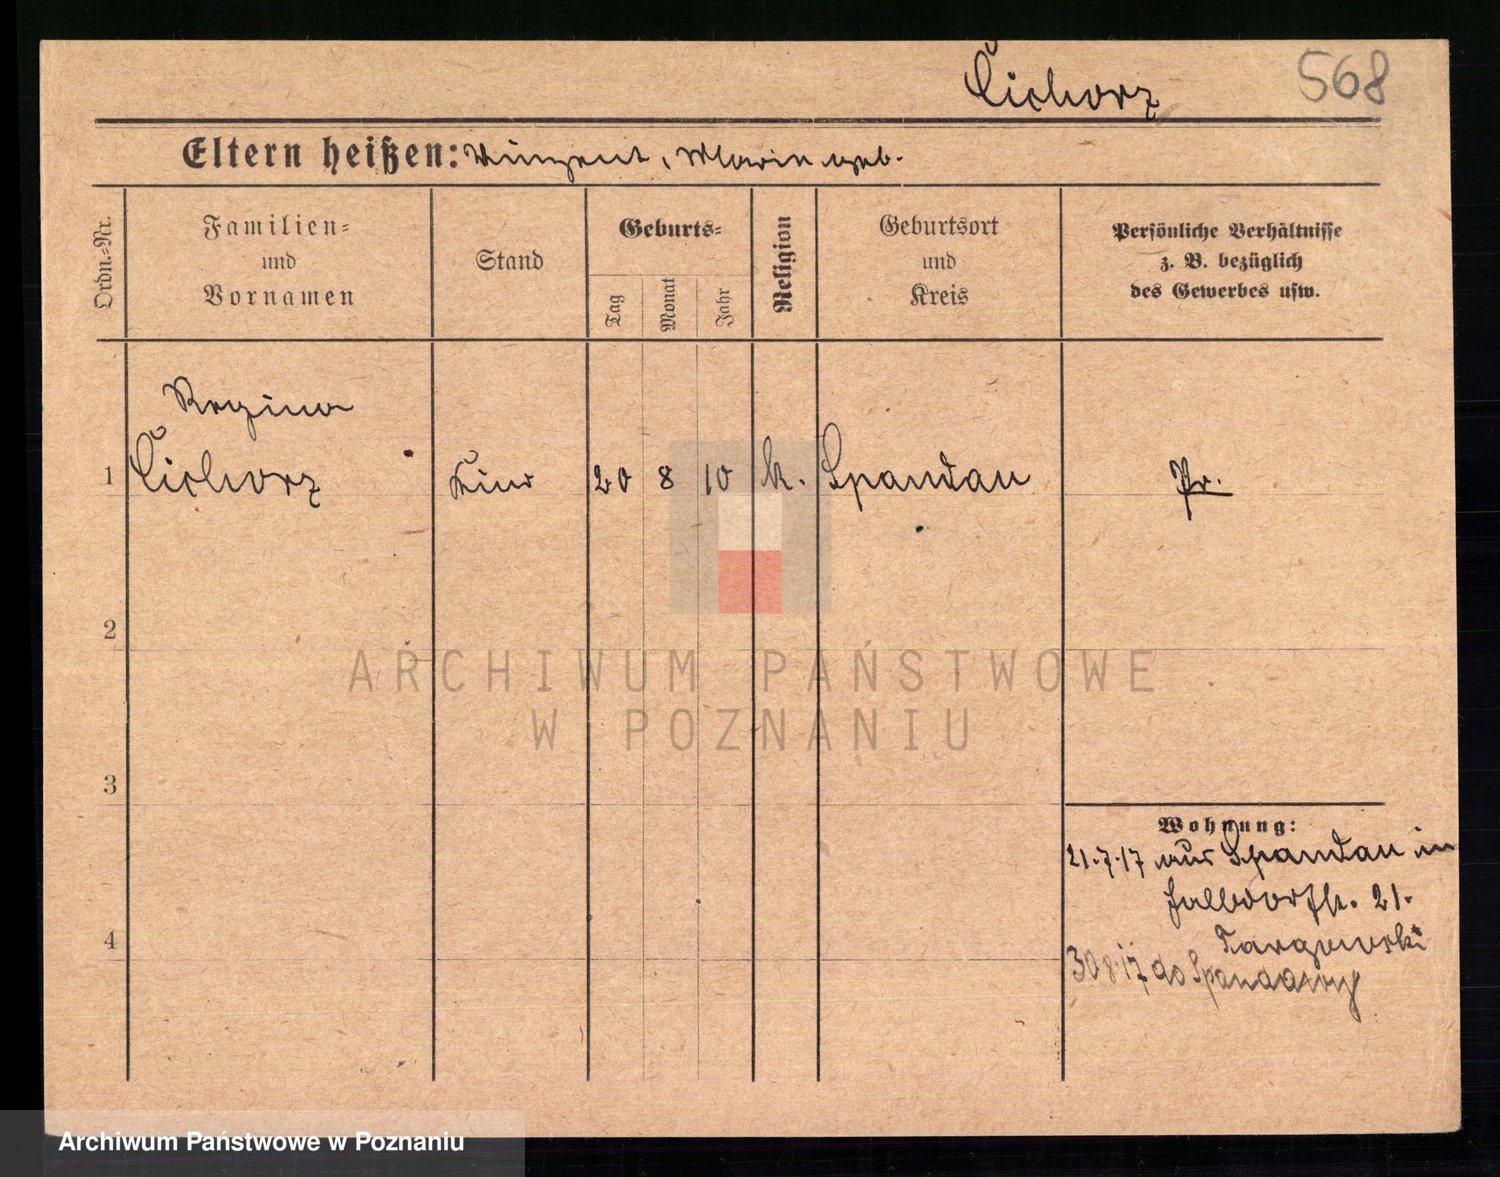 Cichorz
568
Eltern heißen: Vinzent, Marie geb.
Ordn.-Nr.
Familien-
und
Vornamen
Stand
Geburts-
Tag
Monat
Jahr
Religion
Geburtsort
und
Kreis
Persönliche Verhältnisse
z. B. bezüglich
des Gewerbes usw.
Regina
1 Cichorz Kind 20 8 10 k. Spandau Pr.
2
ARCHIWUM PAŃSTWOWE
W POZNANIU
3
Wohnung:
21.7.17 aus Spandau in
21.
4
Targowski
30 8.17 do
Archiwum Państwowe w Poznaniu